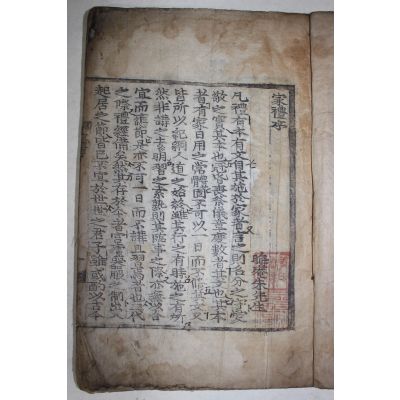 家禮序
晦菴朱先生
凡禮有本有文自其施於家者言之則名分之守愛
敬之實其本也冠昏喪祭儀章度數者其文也其本
者有家日用之常體固不可以一日而不修其文又
皆所以紀綱人道之始終雖其行之有時施之有所
然非講之素明習之素熟則其臨事之際亦無以合
宜而應節是亦不可一日而不講且習焉者也三代
之際禮經備矣然其存於今者宮廬器服之制出入
起居之節皆已不宜於世世之君子雖或酌以古今